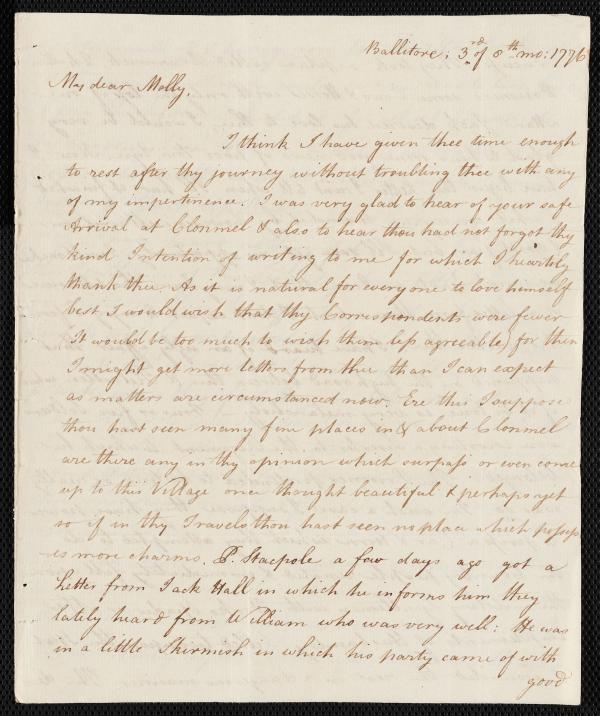 Ballitore: 3rd of 8th mo: 1776
My dear Molly,
I think I have given thee time enough
to rest after thy journey without troubling thee with any
of my impertinence. I was very glad to hear of your safe
Arrival at Clonmel & also to hear thou had not forgot thy
kind Intention of writing to me for which I heartily
thank thee. As it is natural for everyone to love himself
best I would wish that thy Correspondents were fewer
(It would be too much to wish them less agreeable) for then
I might get more letters from thee than I can expect
as matters are circumstanced now. Ere this I suppose
thou hast seen many fine places in & about Clonmel
are there any in thy opinion which surpass or even come
up to this Village once thought beautiful & perhaps yet
so if in thy Travels thou hast seen no place which possess
es more charms. P. Stacpole a few days ago got a
Letter from Jack Hall in which he informs him they
lately heard from William who was very well: He was
in a little Skirmish in which his party came of with
good